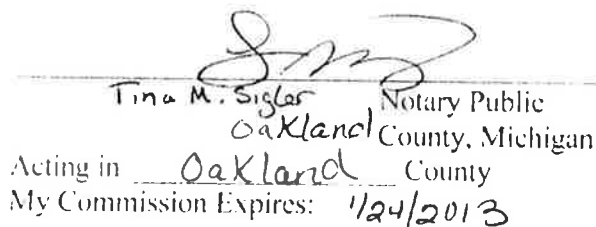 Tina M. Sigler Notary Public
Oakland County, Michigan
Acting in Oakland County
My Commission Expires: 1/24/2013